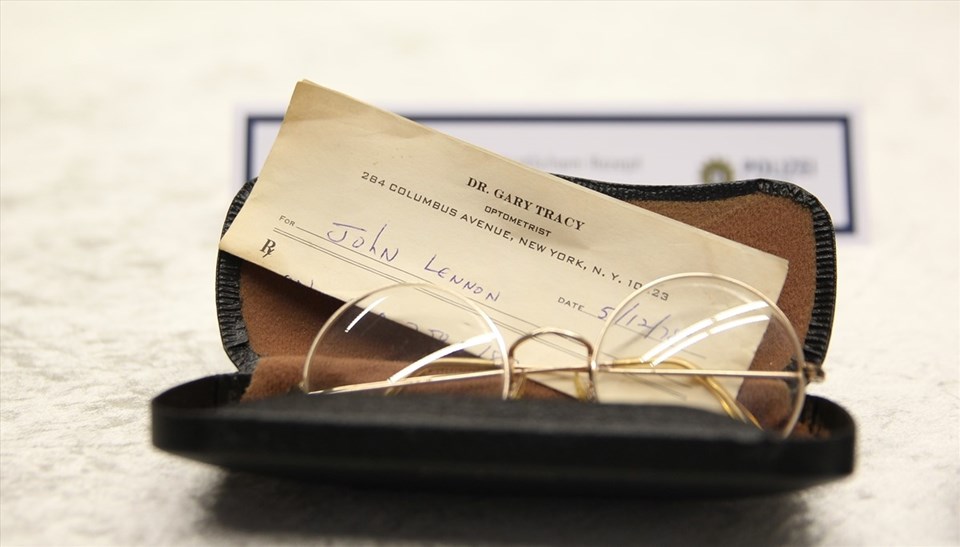 DR. GARY TRACY
OPTOMETRIST
284 COLUMBUS AVENUE, NEW YORK, N. Y. 10023
FOR John LENNON
DATE 5/12/
Rx
POLIZEI